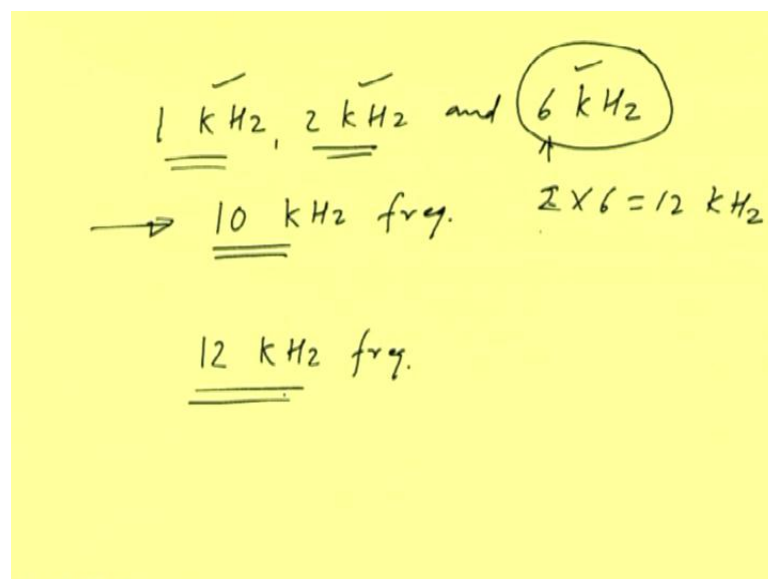 1 kHz, 2 kHz and 6 kHz
→ 10 kHz freq.
2 X 6 = 12 kHz
12 kHz freq.